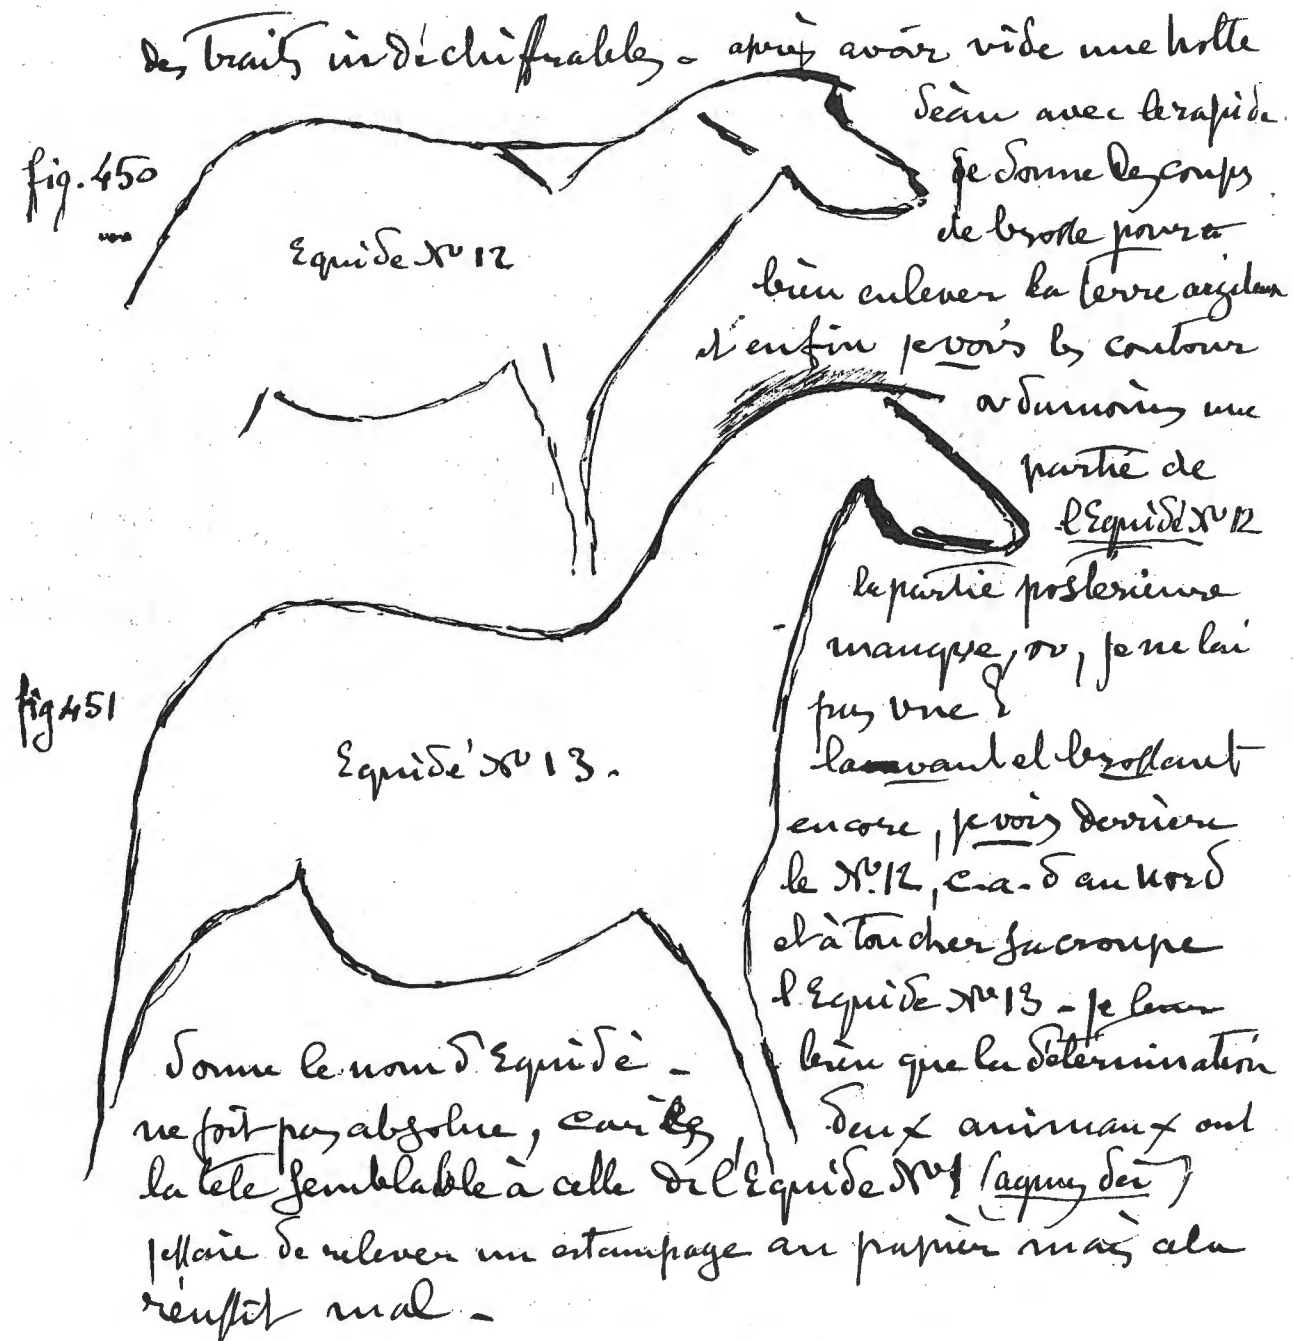 des traits indéchiffrables - après avoir vidé une hotte
d'eau avec le rapide
fig. 450
je donne des coups
de brosse pour
Equidé No 12
bien enlever la terre argileuse
et enfin je vois les contour
ou du moins une
partie de
l'Equidé No 12
la partie postérieure
manque, ou, je ne lai
fig 451
pas vue ?
lavant et brossant
Equidé No 13.
encore, je vois derrière
le No. 12, c.a.d au nord
et à toucher sa croupe
l'Equidé No 13 - je leur
donne le nom d'Equidé -
bien que la détermination
ne soit pas absolue, car les
deux animaux ont
la tete semblable à celle de l'Equidé No 1 (agnus dei)
jessaie de relever un estampage au papier mais cela
réussit mal -